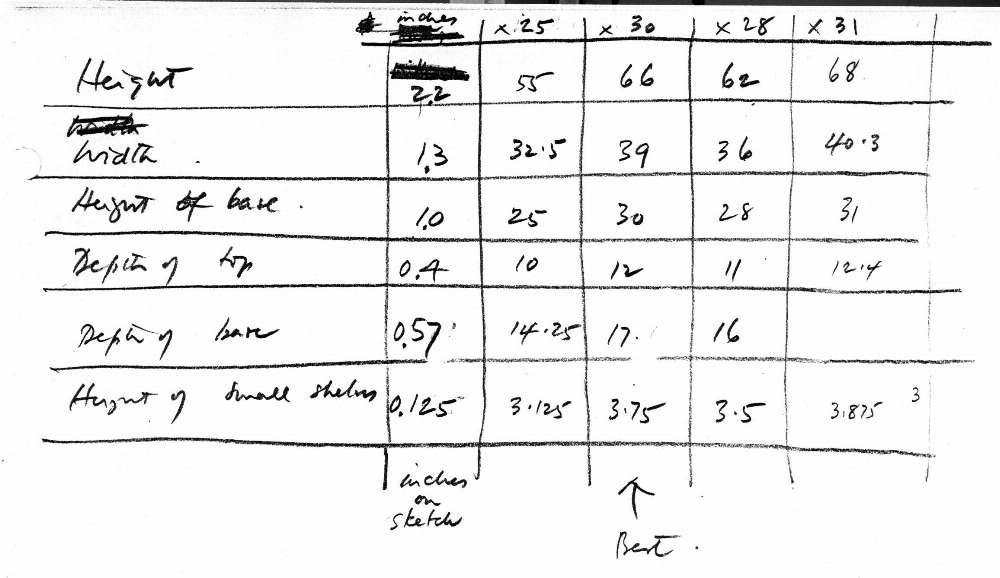 inches × 25 × 30 × 28 × 31
Height 2.2 55 66 62 68
Width . 1.3 32.5 39 36 40.3
Height of base . 1.0 25 30 28 31
Depth of top 0.4 10 12 11 12.4
Depth of base 0.57 14.25 17. 16
Height of small shelves 0.125 3.125 3.75 3.5 3.875 3
inches
on
sketch
↑
Best .